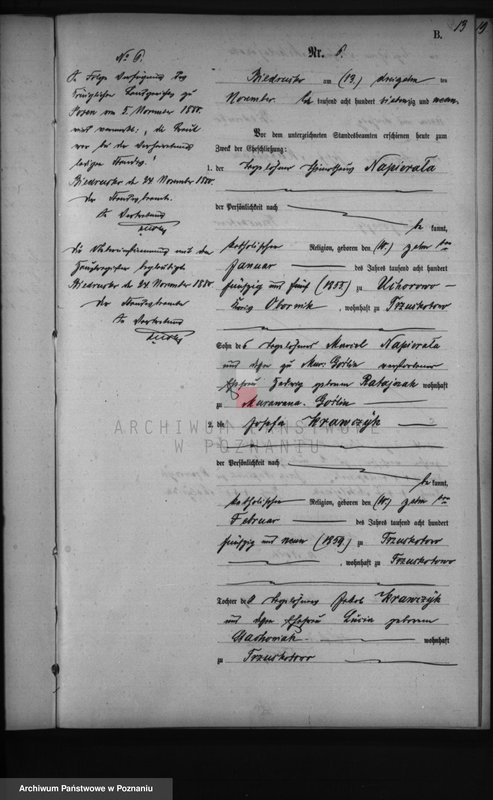 13
19
B.
No 6.
In Folge Verfügung des
Königlichen Landgerichts zu
Posen vom 5. November 1880.
wird vermerkt: „die Braut
war bei der Verheirathung
ledigen Standes."
Biedrusko de 24 November 1880.
Der Standesbeamte.
In Vertretung
die Übereinstimmung mit dem
Hauptregister beglaubigt
Biedrusko de 24 November 1880
Der Standesbeamte
In Vertretung
Nr. 6.
Biedrusko am (13.) ten
November tausend acht hundert siebenzig und neun.
Vor dem unterzeichneten Standesbeamten erschienen heute zum
Zweck der Eheschließung:
1. der Tagelöhner Napierała
der Persönlichkeit nach
be kannt,
katholischer Religion, geboren den (10.) zehn ten
Januar des Jahres tausend acht hundert
fünfzig und fünf (1855) zu Uchorowo
Kreis Obornik, wohnhaft zu Trzuskotowo
Sohn des Tagelöhners Napierała
und dessen zu Mur: Goślin verstorbener
Ehefrau Hedwig geborenen Ratajczak wohnhaft
zu Murowana. Goślin
2. die Josefa Krawczyk
der Persönlichkeit nach
be kannt,
katholischer Religion, geboren den (10.) zehn ten
Februar des Jahres tausend acht hundert
fünfzig und neun (1859) zu Trzuskotowo
, wohnhaft zu Trzuskotowo
Tochter des Tagelöhners Jakob Krawczyk
und dessen Ehefrau Lucia geborenen
Stachowiak wohnhaft
zu Trzuskotowo
ARCHIWUM PAŃSTWOWE
W POZNANIU
Archiwum Państwowe w Poznaniu